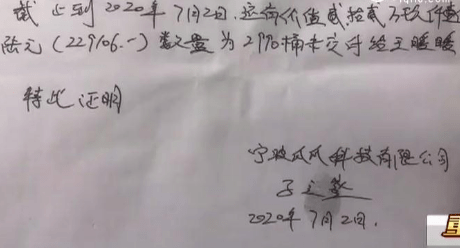 截止到2020年7月2日.还有价值贰拾贰万玖仟壹
陆元(229106.-)数量为2990桶未交付给王暖暖
特此证明
宁波瓜瓜科技有限公司
2020年7月2日.